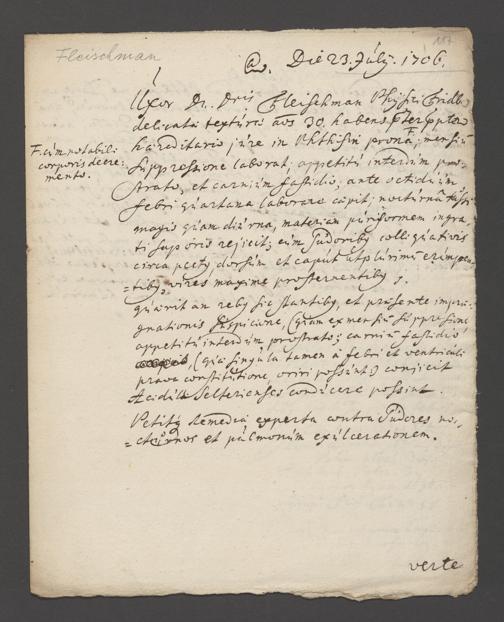 Fleischman
117
@. Die 23. July. 1706.
Uxor Dn. Dris Fleischman Physici
delicata textura aos 30. habens
haereditario jure in Phthisin prona, F. mensiu
F. cum notabili
corporis decre:
mento.
suppressione laborat, appetitu interdum pro-
strato, et carnium fastidio, ante octiduum
febri quartana laborare cepit; nocturna tussi
magis quam diurna, materiam puriformem ingra-
ti saporis rejicit; cum sudoriby colliquativis
circa pecty dorsum et caput utplurimum
=tiby, vires maxime prosternentiby.
quaerit an reby sic stantiby, et praesente impre-
gnationis suspicione, (quam ex mensiu suppressione
appetitu interdum prostrato; carniu fastidio
(quae singula tamen a febri et ventriculi
prava constitutione oriri possunt) conjicit
Acidulae Selterienses conducere possint.
Petity Remedia experta contra sudores no-
=cturnos et pulmonum exulcerationem.
verte